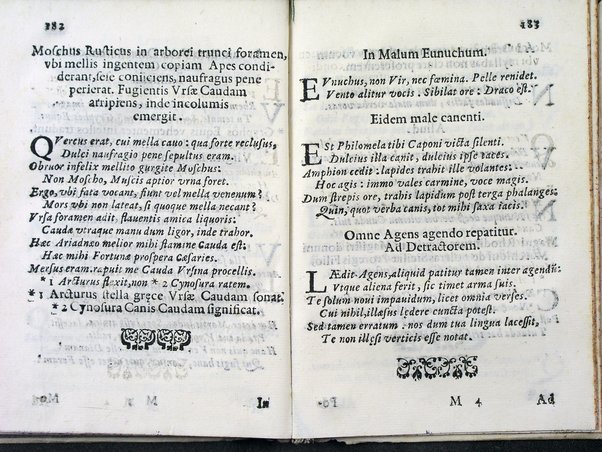 182
Moschus Rusticus in arborei trunci foramen,
vbi mellis ingentem copiam Apes condi-
derant, seie coniiciens, naufragus pene
perierat. Fugientis Vrsæ Caudam
atripiens, inde incolumis
emergit.
QVercus erat, cui mella cauo: qua forte reclusus,
Dulci naufragio pene sepultus eram.
Obruor infelix mellito gurgite Moschus:
Non Moscho, Muscis aptior vrna foret.
Ergo, vbi fata vocant, fiunt vel mella venenum?
Mors vbi non lateat, si quoque mella necant?
Vrsa foramen adit, flauentis amica liquoris:
Cauda vtraque manu dum ligor, inde trabor.
Hæc Ariadnæo melior mihi stamine Cauda est:
Hæc mihi Fortunæ prospera Cæsaries.
Mersus eram. rapuit me Cauda Vrsina procellis.
*1 Arcturus flexit, non *2 Cynosura ratem.
*1 Arcturus stella gręce Vrsæ Caudam sonat.
*2 Cynosura Canis Caudam significat.
In
183
In Malum Eunuchum.
EVnuchus, non Vir, nec fœmina. Pelle renidet.
Vento alitur vocis. Sibilat ore: Draco est.
Eidem male canenti.
ESt Philomela tibi Caponi victa silenti.
Dulcius illa canit, dulcius ipse taces.
Amphion cedit: lapides trahit ille volantes:
Hoc agis: immo vales carmine, voce magis.
Dum strepis ore, trahis lapidum post terga phalanges:
Quin, quot verba canis, tot mihi saxa iacis.
Omne Agens agendo repatitur.
Ad Detractorem.
LÆdit Agens, aliquid patitur tamen inter agendū:
Vtque aliena ferit, sic timet arma suis.
Te solum noui impauidum, licet omnia verses.
Cui nihil, illæsus lędere cuncta potest.
Sed tamen erratum. nos dum tua lingua lacessit,
Te non illęsi verticis esse notat.
M 4
Ad